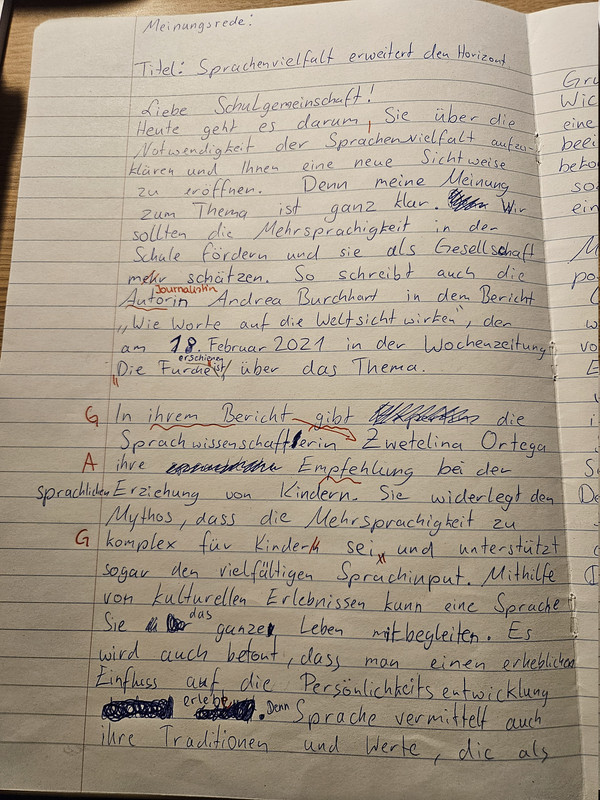 Meinungsrede:
Titel: Sprachenvielfalt erweitert den Horizont
Liebe Schulgemeinschaft!
Heute geht es darum, Sie über die
Notwendigkeit der Sprachenvielfalt aufzu-
klären und Ihnen eine neue Sichtweise
zu eröffnen. Denn meine Meinung
zum Thema ist ganz klar. Wir
sollten die Mehrsprachigkeit in der
Schule fördern und sie als Gesellschaft
mehr schätzen. So schreibt auch die
Journalistin
Autorin Andrea Burchhart in dem Bericht
„Wie Worte auf die Weltsicht wirken", der
am 18. Februar 2021 in der Wochenzeitung
erschienen
"Die Furche ist, über das Thema.
G In ihrem Bericht gibt die
Sprachwissenschaftlerin Zwetelina Ortega
A ihre Empfehlung bei der
sprachlichen Erziehung von Kindern. Sie widerlegt den
Mythos, dass die Mehrsprachigkeit zu
G komplex für Kinder sei, und unterstützt
sogar den vielfältigen Sprachinput. Mithilfe
von kulturellen Erlebnissen kann eine Sprache
Sie das ganze Leben mitbegleiten. Es
wird auch betont, dass man einen erheblichen
Einfluss auf die Persönlichkeitsentwicklung
erlebe. Denn Sprache vermittelt auch
ihre Traditionen und Werte, die als
Gru
Wic
eine
beei
beto
so
ein